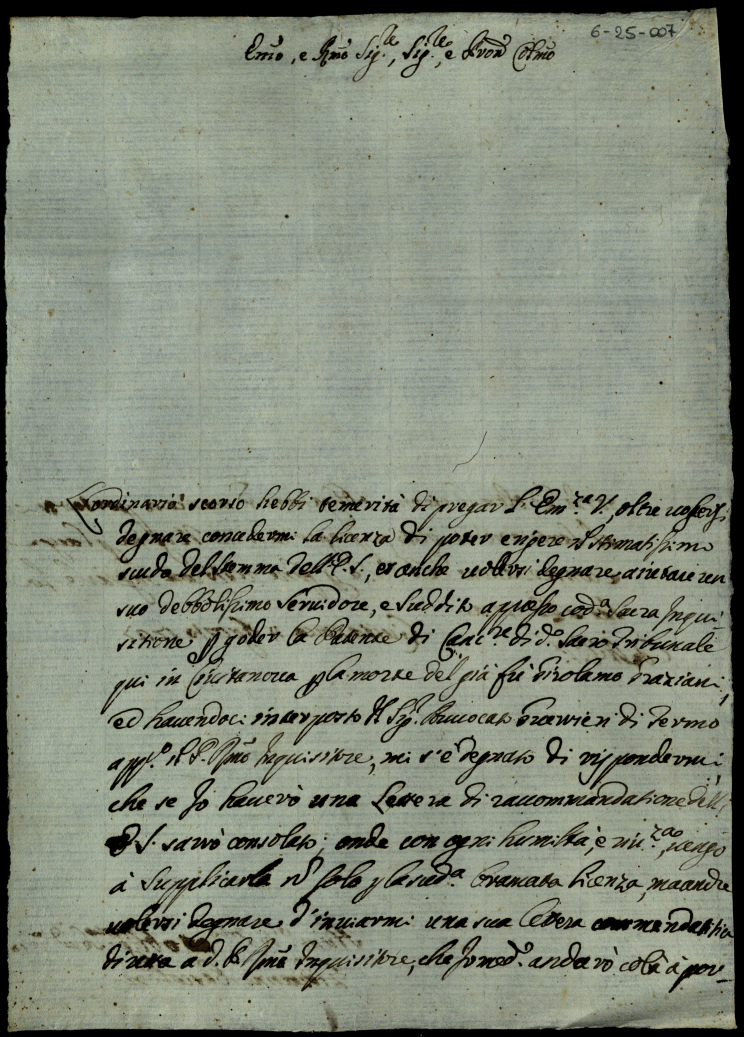 6-25-007
Em̃o, e Rm̃o Sig.re, Sig.re, e Pron Colmo
L'ordinario scorso hebbi temerità di pregar l'Em.za V., oltre volersi
degnare concedermi la licenza di poter ergere il stimatissimo
scudo del stemma dell'E. S., et anche volersi degnare aiutare un
suo debbolissimo servidore, e suddito appresso cod.a Sacra Inqui
sitione p goder la Patente di Canc.re di d.o Sacro Tribunale
qui in Civitanova p la morte del già fù Girolamo Graziani,
ed havendoci interposto il Sig.r Avvocato di Fermo
app.o il P. Rm̃o Inquisitore, mi s'è degnato di rispondermi
che se Io haverò una Lettera di raccommandatione dell'
E. S. sarrò consolato; onde con ogni humiltà, e vengo
à supplicarla nõ solo p la sud.a bramata licenza, ma anche
volersi degnare d'inviarmi una sua lettera commendatitia
diretta a d. P. Rm̃o Inquisitore, che Io med.o andarò colà à por-